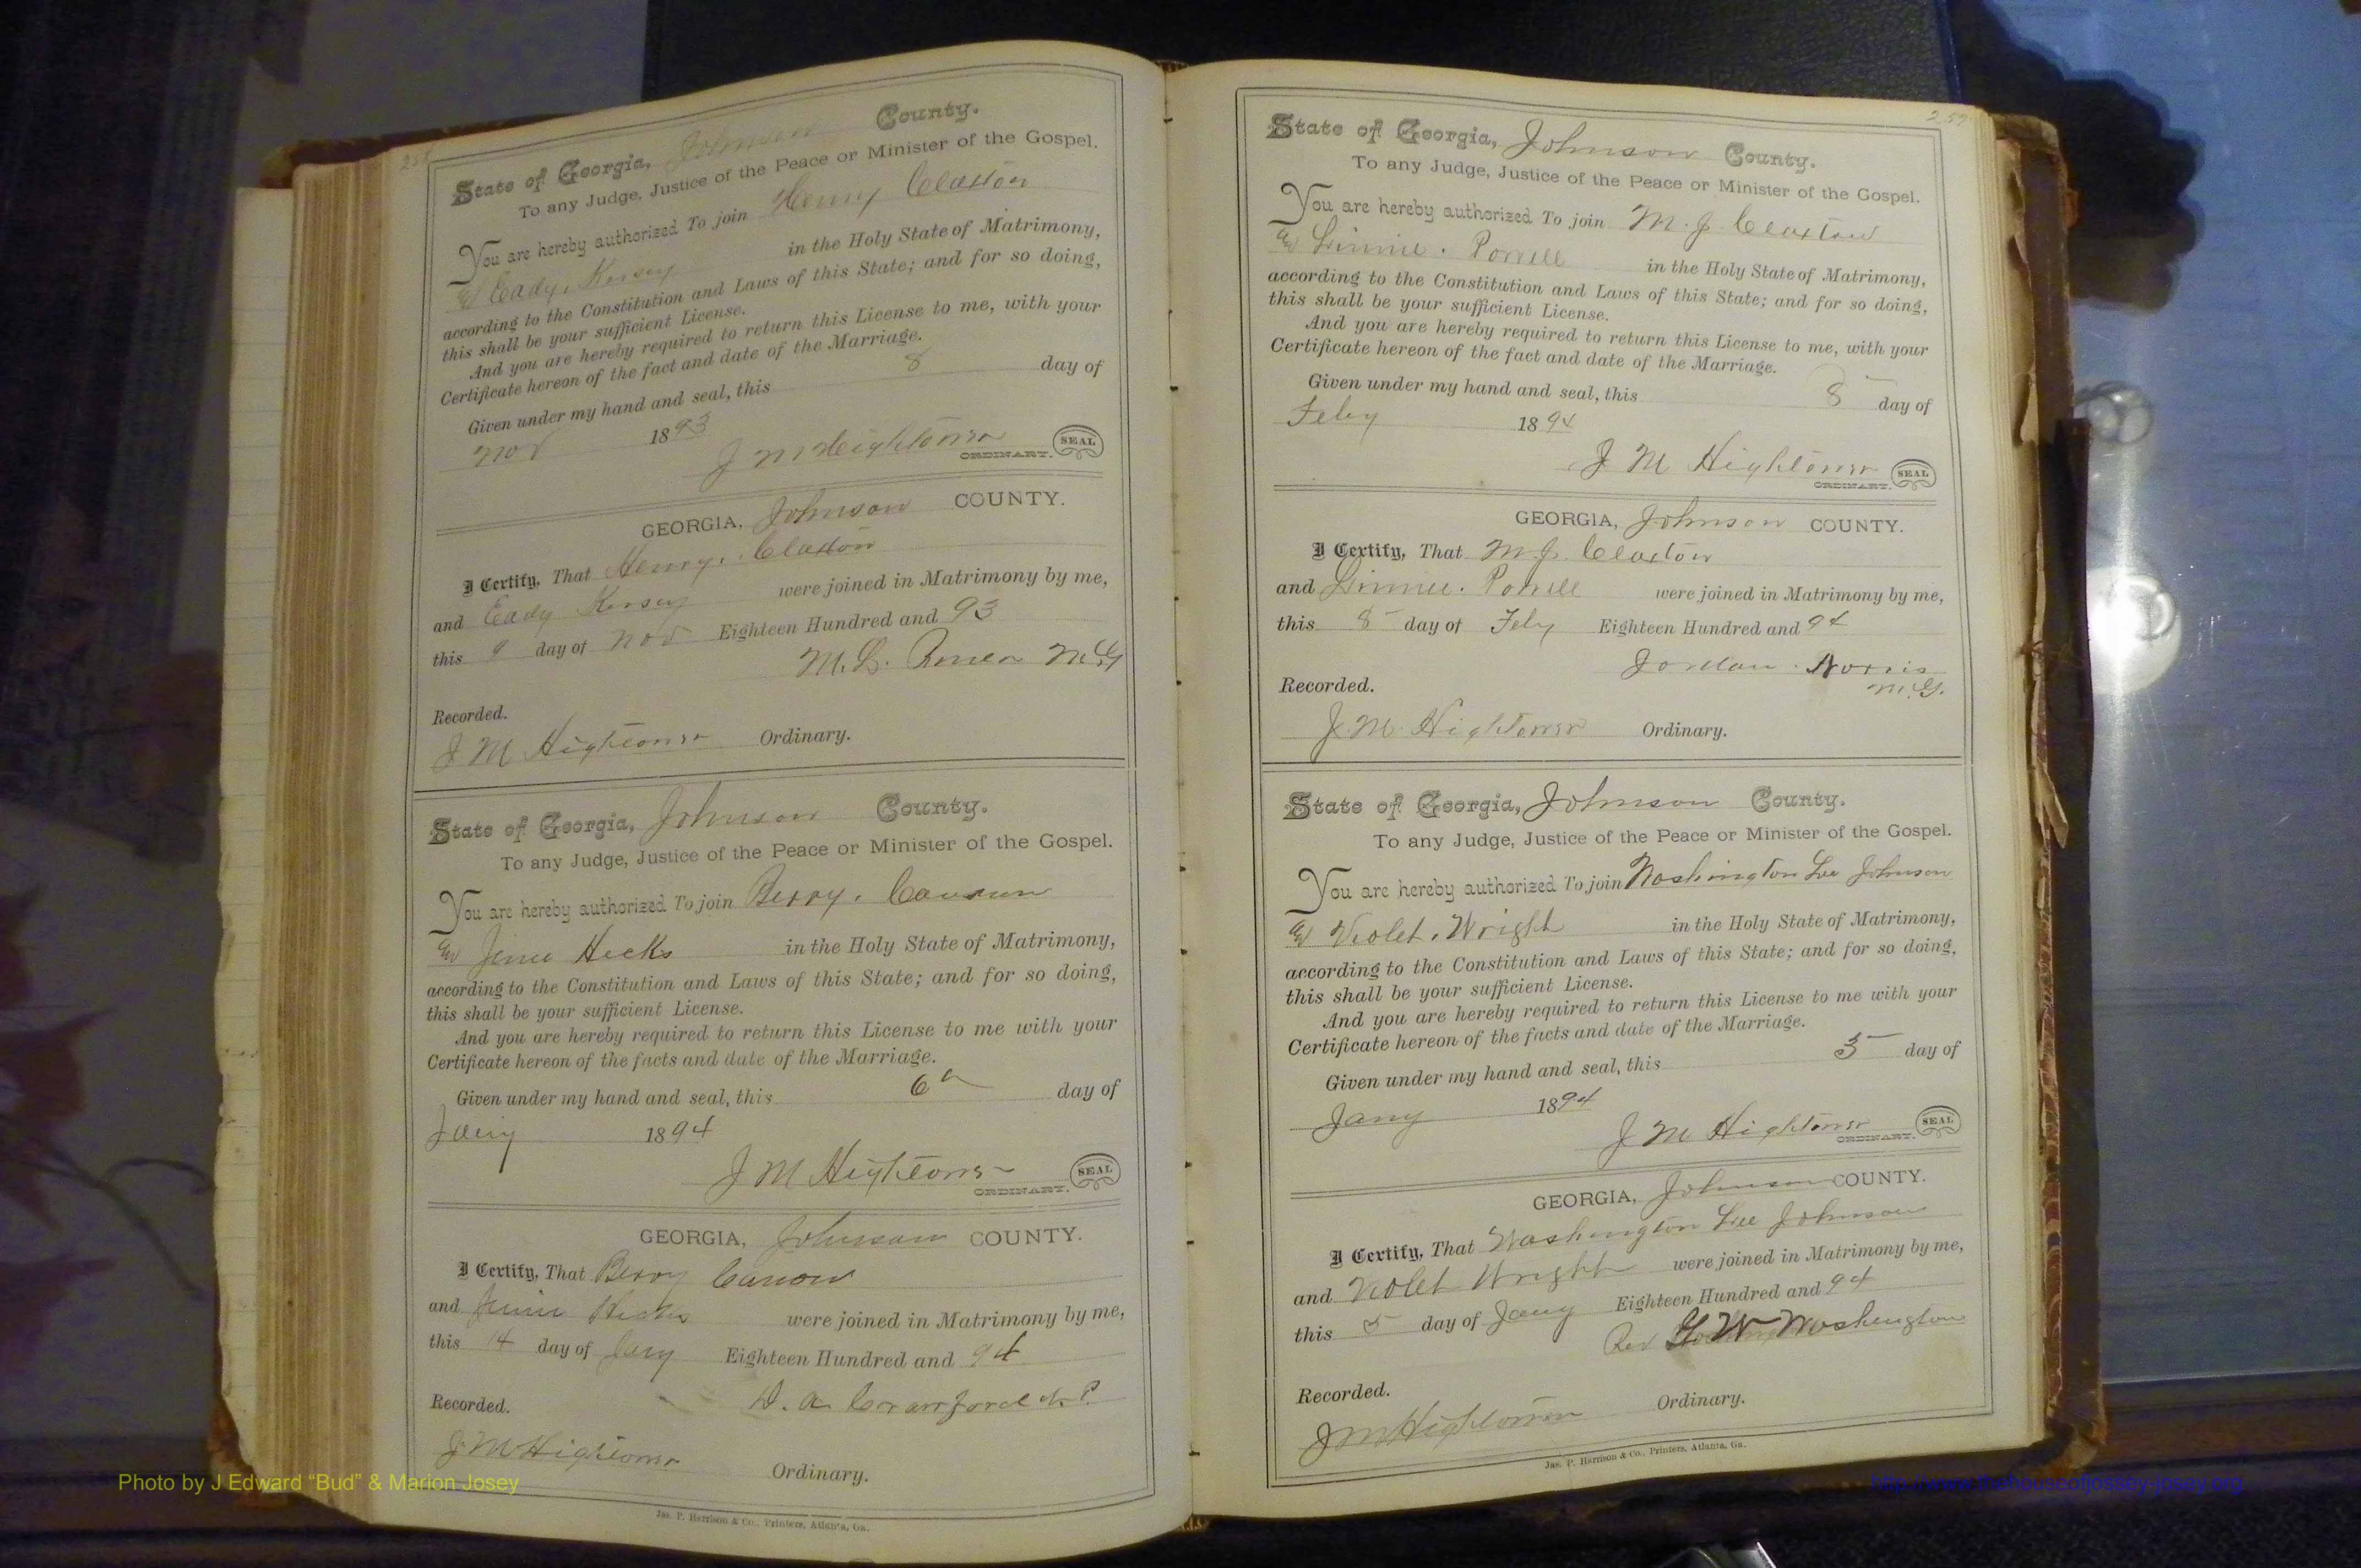 State of Georgia, Johnson County.
To any Judge, Justice of the Peace or Minister of the Gospel.
You are hereby authorized To join Henry Claxton
& Eady Kersey in the Holy State of Matrimony,
according to the Constitution and Laws of this State; and for so doing,
this shall be your sufficient License.
And you are hereby required to return this License to me, with your
Certificate hereon of the fact and date of the Marriage.
Given under my hand and seal, this 8 day of
Nov 1893
J M Hightower
ORDINARY. SEAL
GEORGIA, Johnson COUNTY.
I Certify, That Henry Claxton
and Eady Kersey were joined in Matrimony by me,
this 9 day of Nov Eighteen Hundred and 93
M. L. M.G
Recorded.
J M Hightower Ordinary.
State of Georgia, Johnson County.
To any Judge, Justice of the Peace or Minister of the Gospel.
You are hereby authorized To join Berry
& Hicks in the Holy State of Matrimony,
according to the Constitution and Laws of this State; and for so doing,
this shall be your sufficient License.
And you are hereby required to return this License to me with your
Certificate hereon of the facts and date of the Marriage.
Given under my hand and seal, this 6 day of
Jany 1894
J M Hightower
ORDINARY. SEAL
GEORGIA, Johnson COUNTY.
I Certify, That Berry
and Hicks were joined in Matrimony by me,
this 14 day of Jany Eighteen Hundred and 94
D. A. Crawford N.P.
Recorded.
J M Hightower
Ordinary.
Jas. P. Harrison & Co., Printers, Atlanta, Ga.
Photo by J Edward “Bud” & Marion Josey
State of Georgia, Johnson County.
To any Judge, Justice of the Peace or Minister of the Gospel.
You are hereby authorized To join M. J. Claxton
& Linnie Powell in the Holy State of Matrimony,
according to the Constitution and Laws of this State; and for so doing,
this shall be your sufficient License.
And you are hereby required to return this License to me, with your
Certificate hereon of the fact and date of the Marriage.
Given under my hand and seal, this 8 day of
Feby 1894
J M Hightower
ORDINARY. SEAL
GEORGIA, Johnson COUNTY.
I Certify, That M. J. Claxton
and Linnie Powell were joined in Matrimony by me,
this 8 day of Feby Eighteen Hundred and 94
Jordan Norris
M.G.
Recorded.
J. M. Hightower Ordinary.
State of Georgia, Johnson County.
To any Judge, Justice of the Peace or Minister of the Gospel.
You are hereby authorized To join Washington Lee Johnson
& Violet Wright in the Holy State of Matrimony,
according to the Constitution and Laws of this State; and for so doing,
this shall be your sufficient License.
And you are hereby required to return this License to me with your
Certificate hereon of the facts and date of the Marriage.
Given under my hand and seal, this 5 day of
Jany 1894
J M Hightower
ORDINARY. SEAL
GEORGIA, Johnson COUNTY.
I Certify, That Washington Lee Johnson
and Violet Wright were joined in Matrimony by me,
this 5 day of Jany Eighteen Hundred and 94
Rev G W Washington
Recorded.
J M Hightower Ordinary.
Jas. P. Harrison & Co., Printers, Atlanta, Ga.
http://www.thehouseofjossey-josey.org